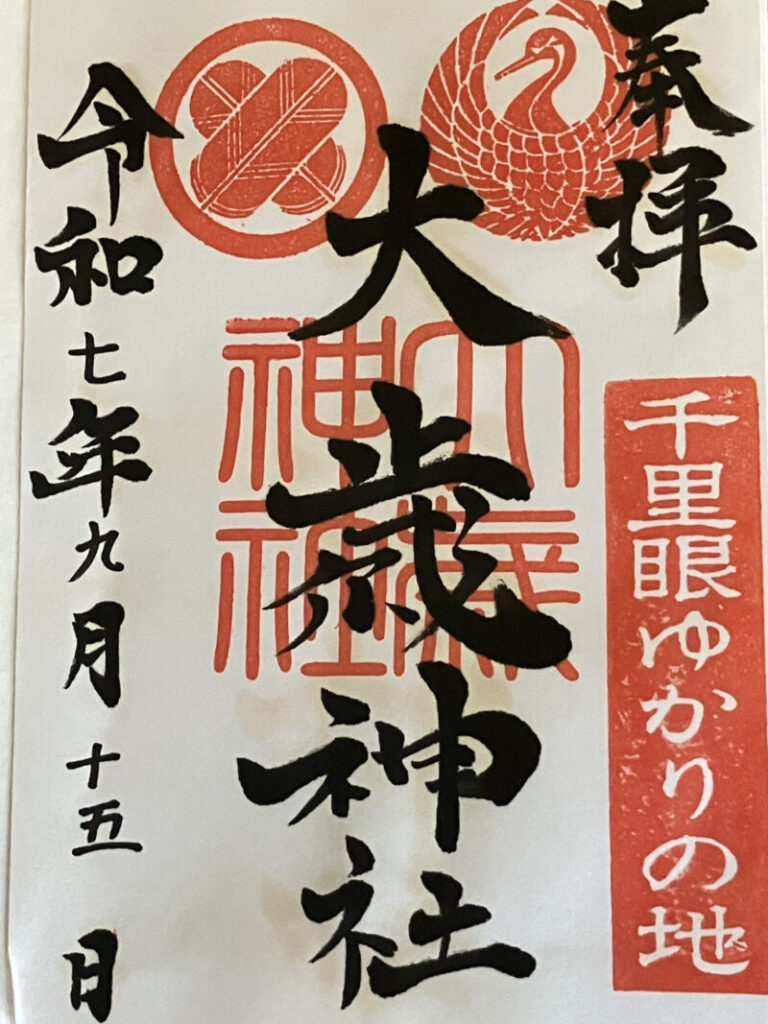 奉拝
千里眼ゆかりの地
大歳神社
大歳神社
令和七年九月十五日